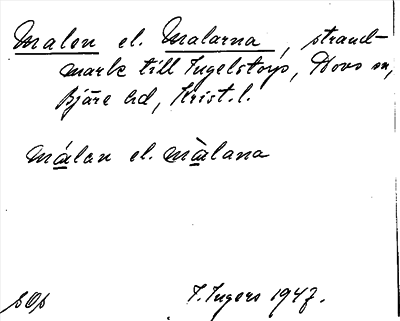 Malen el. Malarna, strand-
mark till Ingelstorp, Hovs sn,
Bjäre hd, Krist. l.
málan el. màlana
sOp
I. Ingers 1947.